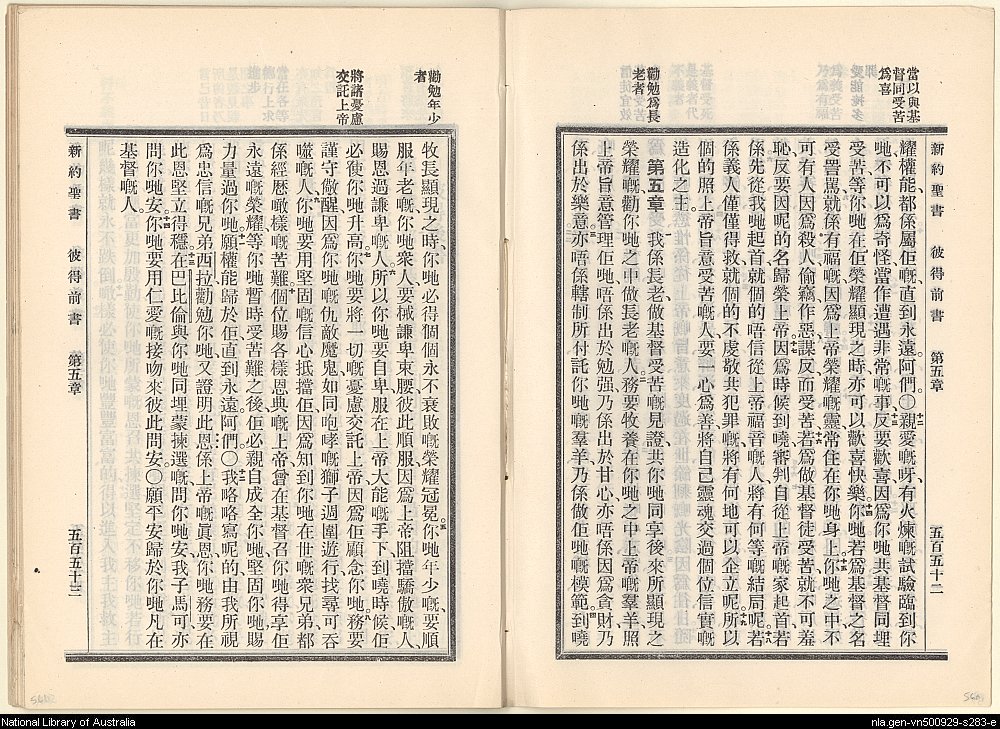 新約聖書 彼得前書 第五章 五百五十二
當以與基
督同受苦
爲喜
耀權能都係屬佢嘅、直到永遠。阿們。〇親愛嘅呀、有火煉嘅試驗臨到你
哋、不可以爲奇怪、當作遭遇非常嘅事、反要歡喜、因爲你哋共基督同埋
受苦、等你哋在佢榮耀顯現之時、亦可以歡喜快樂。你哋若爲基督之名
受詈罵、就係有福嘅、因爲上帝榮耀嘅靈、常住在你哋身上。你哋之中、不
可有人因爲殺人、偷竊、作惡、謀反、而受苦。若爲做基督徒受苦、就不可羞
恥、反要因呢的名歸榮上帝。因爲時候到嘵、審判自從上帝嘅家起首、若
係先從我哋起首、就個的唔信從上帝福音嘅人、將有何等嘅結局呢。若
係義人僅僅得救、就個的不虔敬共犯罪嘅、將有何地可以企立呢。所以
個的照上帝旨意受苦嘅人、要一心爲善、將自己靈魂交過個位信實嘅
造化之主。
勸勉爲長
老者
第五章 我係長老、做基督受苦嘅見證、共你哋同享後來所顯現之
榮耀嘅、勸你哋之中做長老嘅人、務要牧養在你哋之中上帝嘅羣羊、照
上帝旨意管理佢哋、唔係出於勉强、乃係出於甘心、亦唔係因爲貪財、乃
係出於樂意、亦唔係轄制所付託你哋嘅羣羊、乃係做佢哋嘅模範。到嘵
牧長顯現之時、你哋必得個個永不衰敗嘅榮耀冠冕。你哋年少嘅、要順
勸勉年少
者
服年老嘅、你哋衆人、要械謙卑束腰、彼此順服、因爲上帝阻擋驕傲嘅人、
賜恩過謙卑嘅人。所以你哋要自卑服在上帝大能嘅手下、到嘵時候佢
將諸憂慮
交託上帝
必使你哋升高。你哋要將一切嘅憂慮交託上帝、因爲佢顧念你哋。務要
謹守儆醒、因爲你哋嘅仇敵魔鬼、如同咆哮嘅獅子、週圍遊行、找尋可吞
噬嘅人。你哋要用堅固嘅信心抵擋佢、因爲知到你哋在世嘅衆兄弟、都
係經歷噉樣嘅苦難。個位賜各樣恩典嘅上帝、曾在基督召你哋得享佢
永遠嘅榮耀、等你哋暫時受苦難之後、佢必親自成全你哋、堅固你哋、賜
力量過你哋。願權能歸於佢、直到永遠。阿們。〇我略略寫呢的、由我所視
爲忠信嘅兄弟西拉、勸勉你哋、又證明此恩係上帝嘅眞恩、你哋務要在
此恩堅立得穩。在巴比倫與你哋同埋蒙揀選嘅、問你哋安、我子馬可、亦
問你哋安。你哋要用仁愛嘅接吻來彼此問安。〇願平安歸於你哋凡在
基督嘅人。
新約聖書 彼得前書 第五章 五百五十三
National Library of Australia
nla.gen-vn500929-s283-e